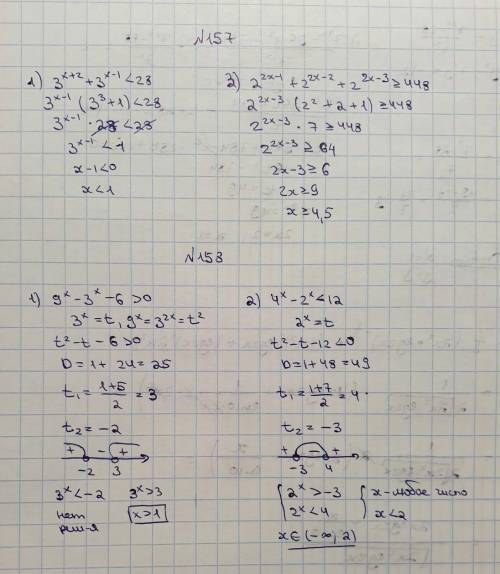 №157
1) 3^{x+2} + 3^{x-1} < 28
3^{x-1} (3^3 + 1) < 28
3^{x-1} · 28 < 28
3^{x-1} < 1
x-1 < 0
x < 1
3) 2^{2x-1} + 2^{2x-2} + 2^{2x-3} ≥ 448
2^{2x-3} (2^2 + 2 + 1) ≥ 448
2^{2x-3} · 7 ≥ 448
2^{2x-3} ≥ 64
2x-3 ≥ 6
2x ≥ 9
x ≥ 4,5
№153
1) 9^x - 3^x - 6 > 0
3^x = t, 9^x = 3^{2x} = t^2
t^2 - t - 6 > 0
D = 1 + 24 = 25
t_1 = (1+5)/2 = 3
t_2 = -2
+ - +
-2 3
3^x < -2 3^x > 3
нет x > 1
реш-я
2) 4^x - 2^x < 12
2^x = t
t^2 - t - 12 < 0
D = 1 + 48 = 49
t_1 = (1+7)/2 = 4
t_2 = -3
+ - +
-3 4
{ 2^x > -3 { x - любое число
2^x < 4 x < 2
x ∈ (-∞; 2)